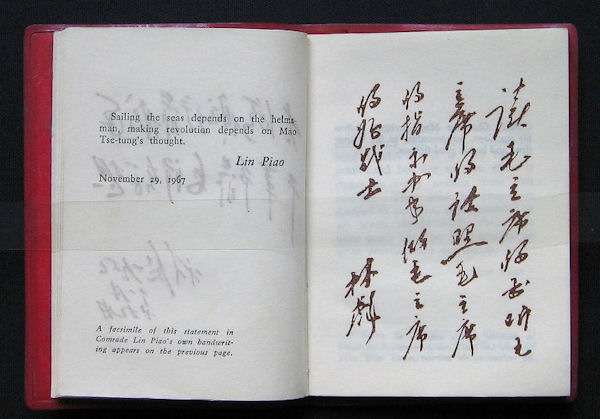 Sailing the seas depends on the helms-
man, making revolution depends on Mao
Tse-tung's thought.
Lin Piao
November 29, 1967
A facsimile of this statement in
Comrade Lin Piao's own handwrit-
ing appears on the previous page.
读毛主席的书听毛
主席的话照毛主席
的指示办事做毛主席
的好战士
林彪